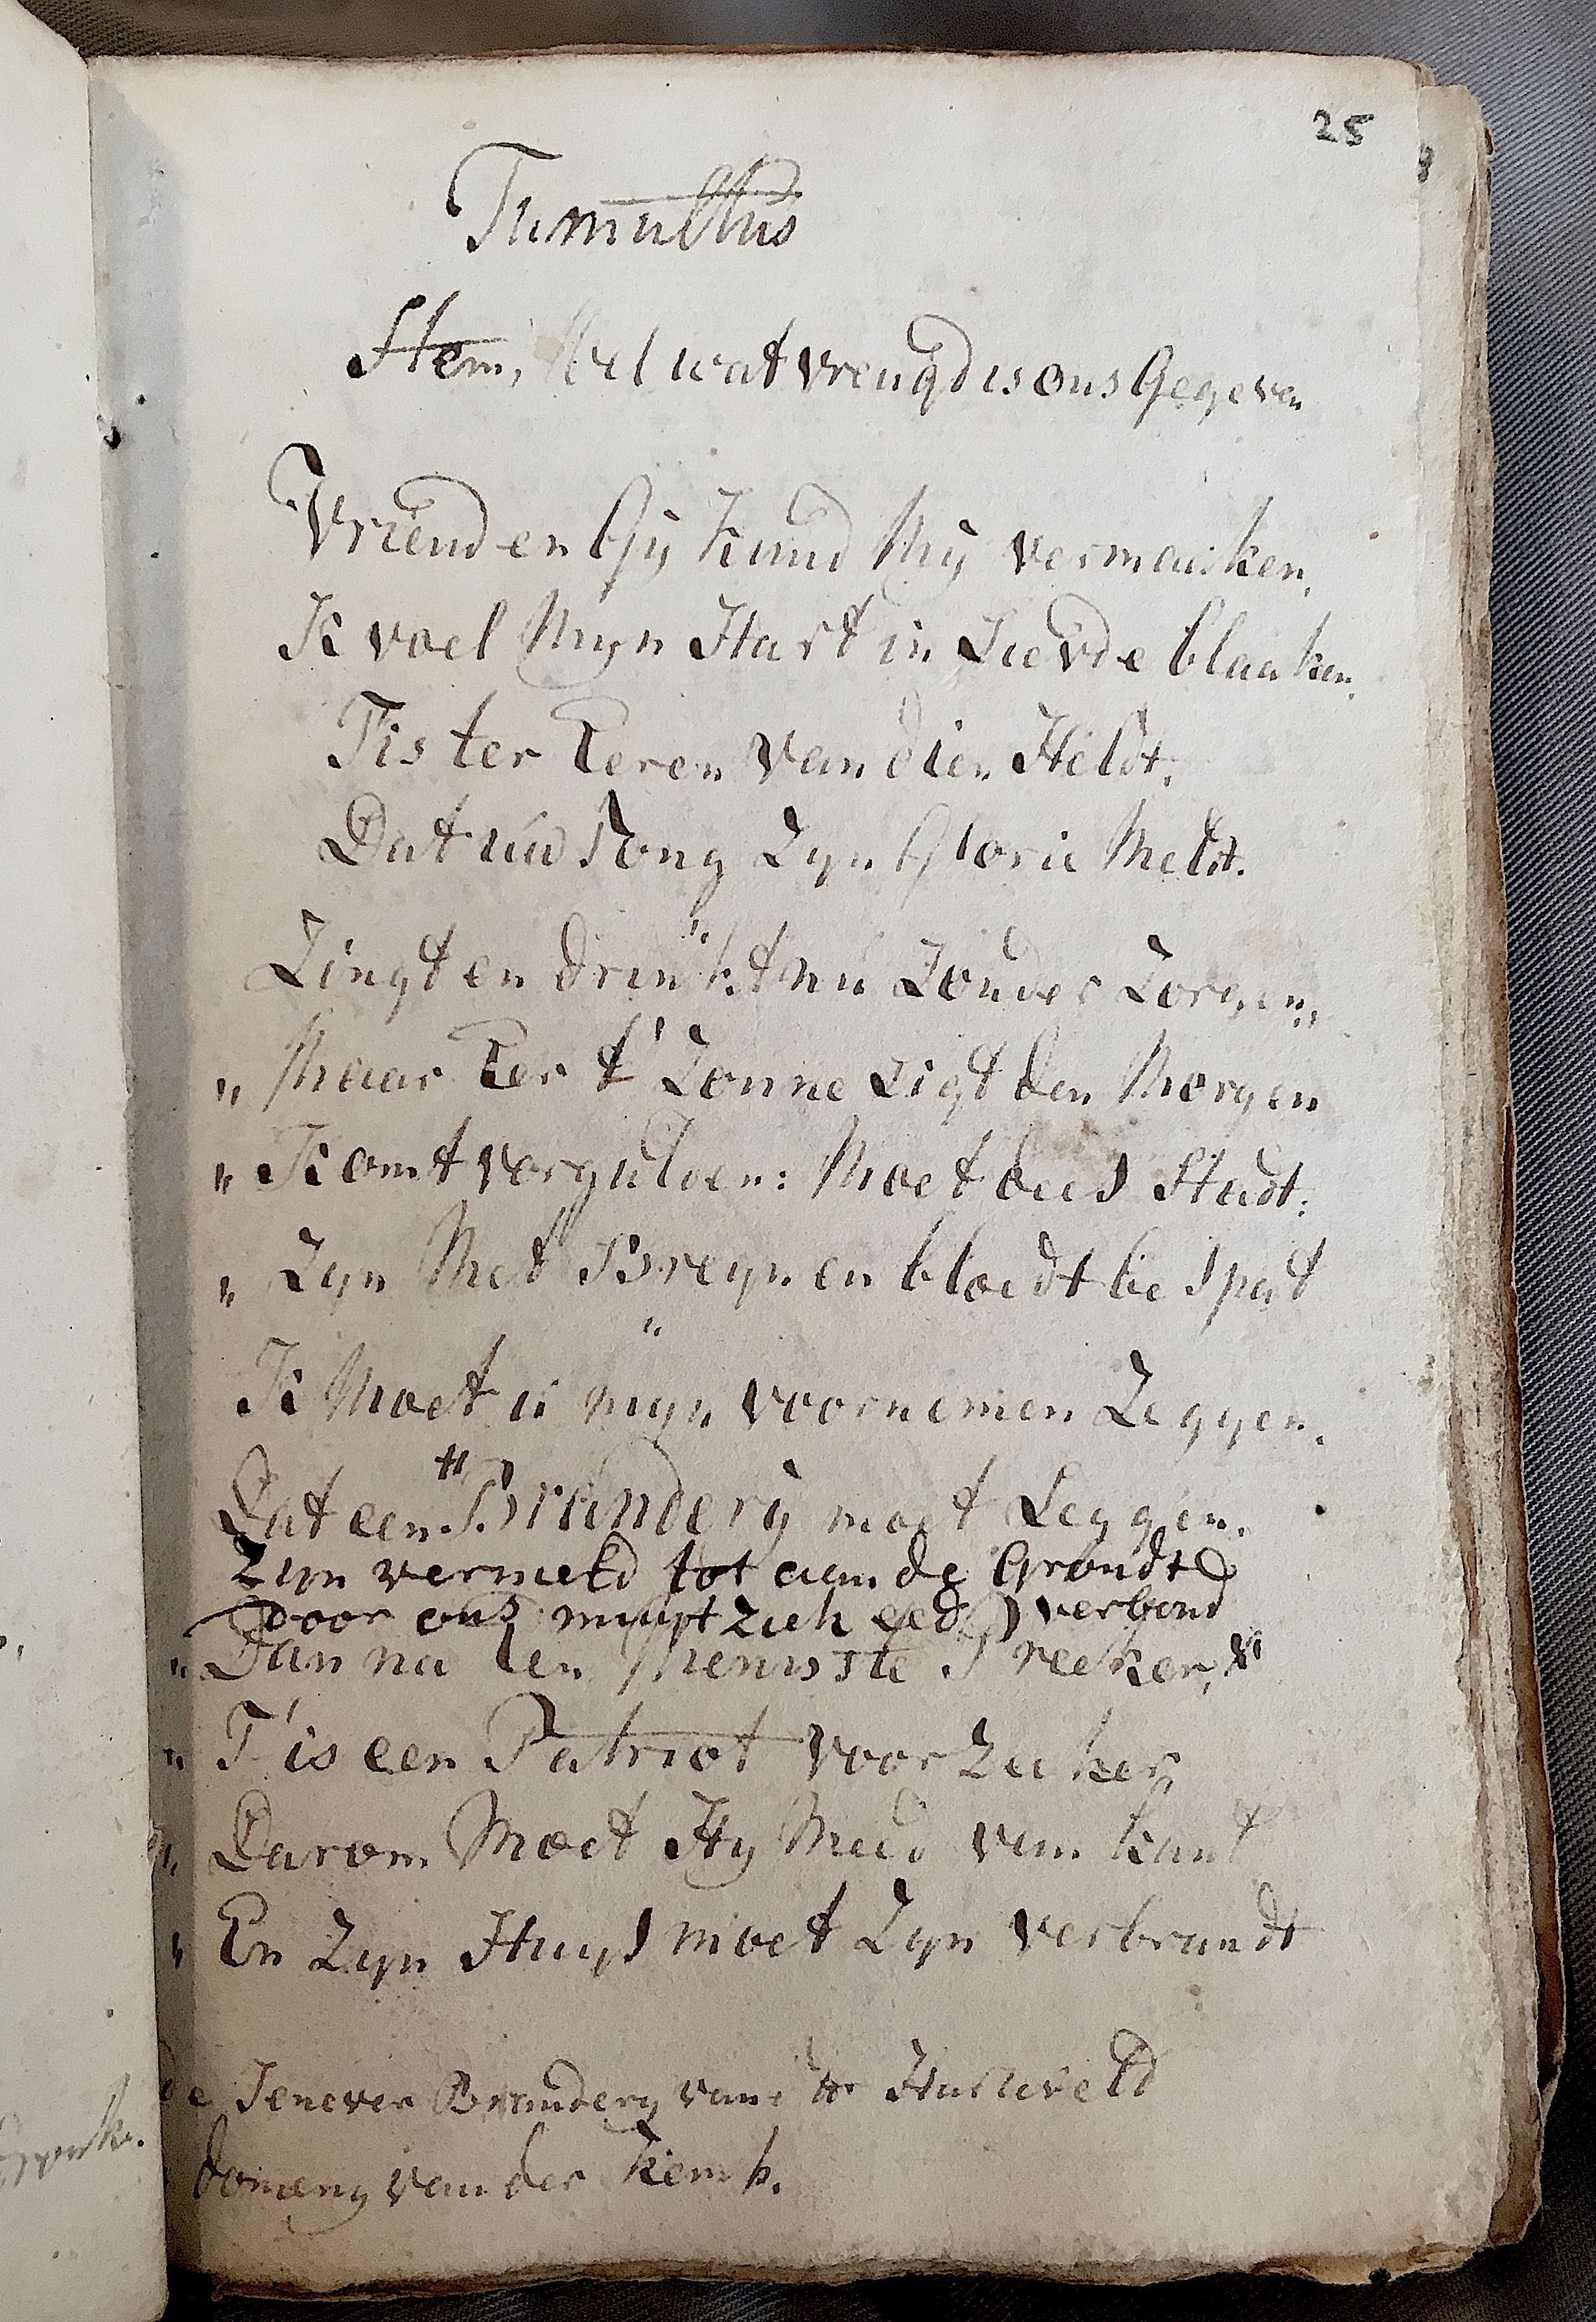 25
Tumultus
Stem, Wel wat vreugd is ons Gegeven
Vrienden Gÿ Kund Mÿ vermaaken,
Ik voel Myn Hart in Liefde blaaken,
Tis ter Eeren van dien Heldt,
Dat uw Tong Zyn Glorie Meldt.
"
Zingt en drinkt nu Zonder Zorgen,,
„ Maar Eer t' Zonne Ligt den Morgen
„ Komt vergulden: Moet dees Stadt:
„ Zyn Met Breyn en bloedt be Spat
"
Ik Moet u myn voornemen Zeggen,
Dat een # Brandery moet Leggen,
Zyn vernield tot aan de Grondt
Door ons: zich verbond
„ Dan na den Menniste Preeker,
„ T'is een Patriot voor Zeeker
„ Darom Moet Hy Meed van kant
„ En Zyn Huys moet Zyn verbrandt
de Jenever Brandery van Hr
domeny van der Kemp.